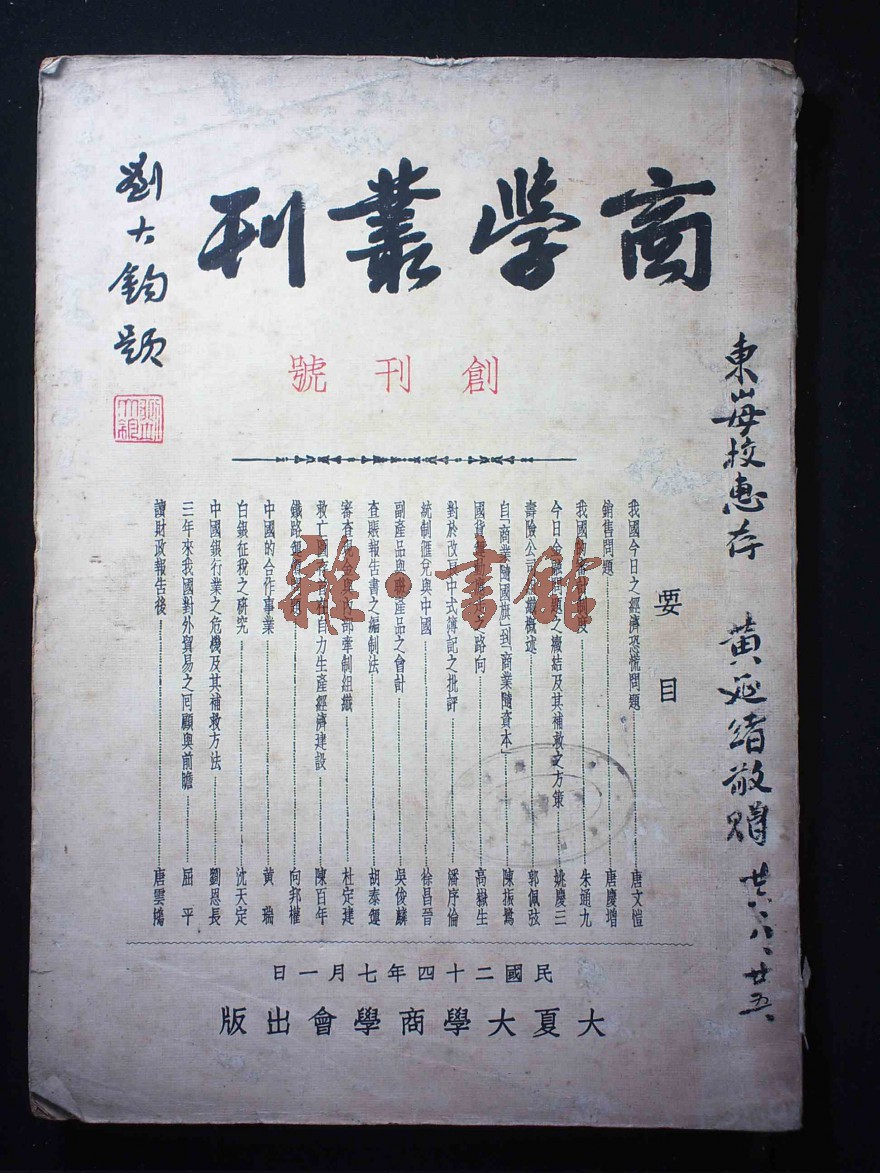 商學叢刊
劉大鈞題
創刊號
要目
我國今日之經濟恐慌問題 唐文愷
銷售問題 唐慶增
我國 制度 朱通九
今日金融問題之癥結及其補救之方策 姚慶三
壽險公司組織概述 郭佩弦
自「商業隨國旗」到「商業隨資本」 陳振鷺
國貨 之路向 高嶽生
對於改良中式簿記之批評 潘序倫
統制匯兌與中國 徐昌晉
副產品與聯產品之會計 吳俊麟
查賬報告書之編制法 胡泰運
審查現金與內部牽制組織 杜定建
救亡圖存 在自力生產經濟建設 陳百年
鐵路 問題 向邦權
中國的合作事業 黃瑞
白銀征稅之研究 沈天定
中國銀行業之危機及其補救方法 劉恩長
三年來我國對外貿易之回顧與前瞻 屈平
讀財政報告後 唐雲鴻
民國二十四年七月一日
大夏大學商學會出版
東山母校惠存 黃延緒敬贈 廿六、八、廿五、
雅·書館